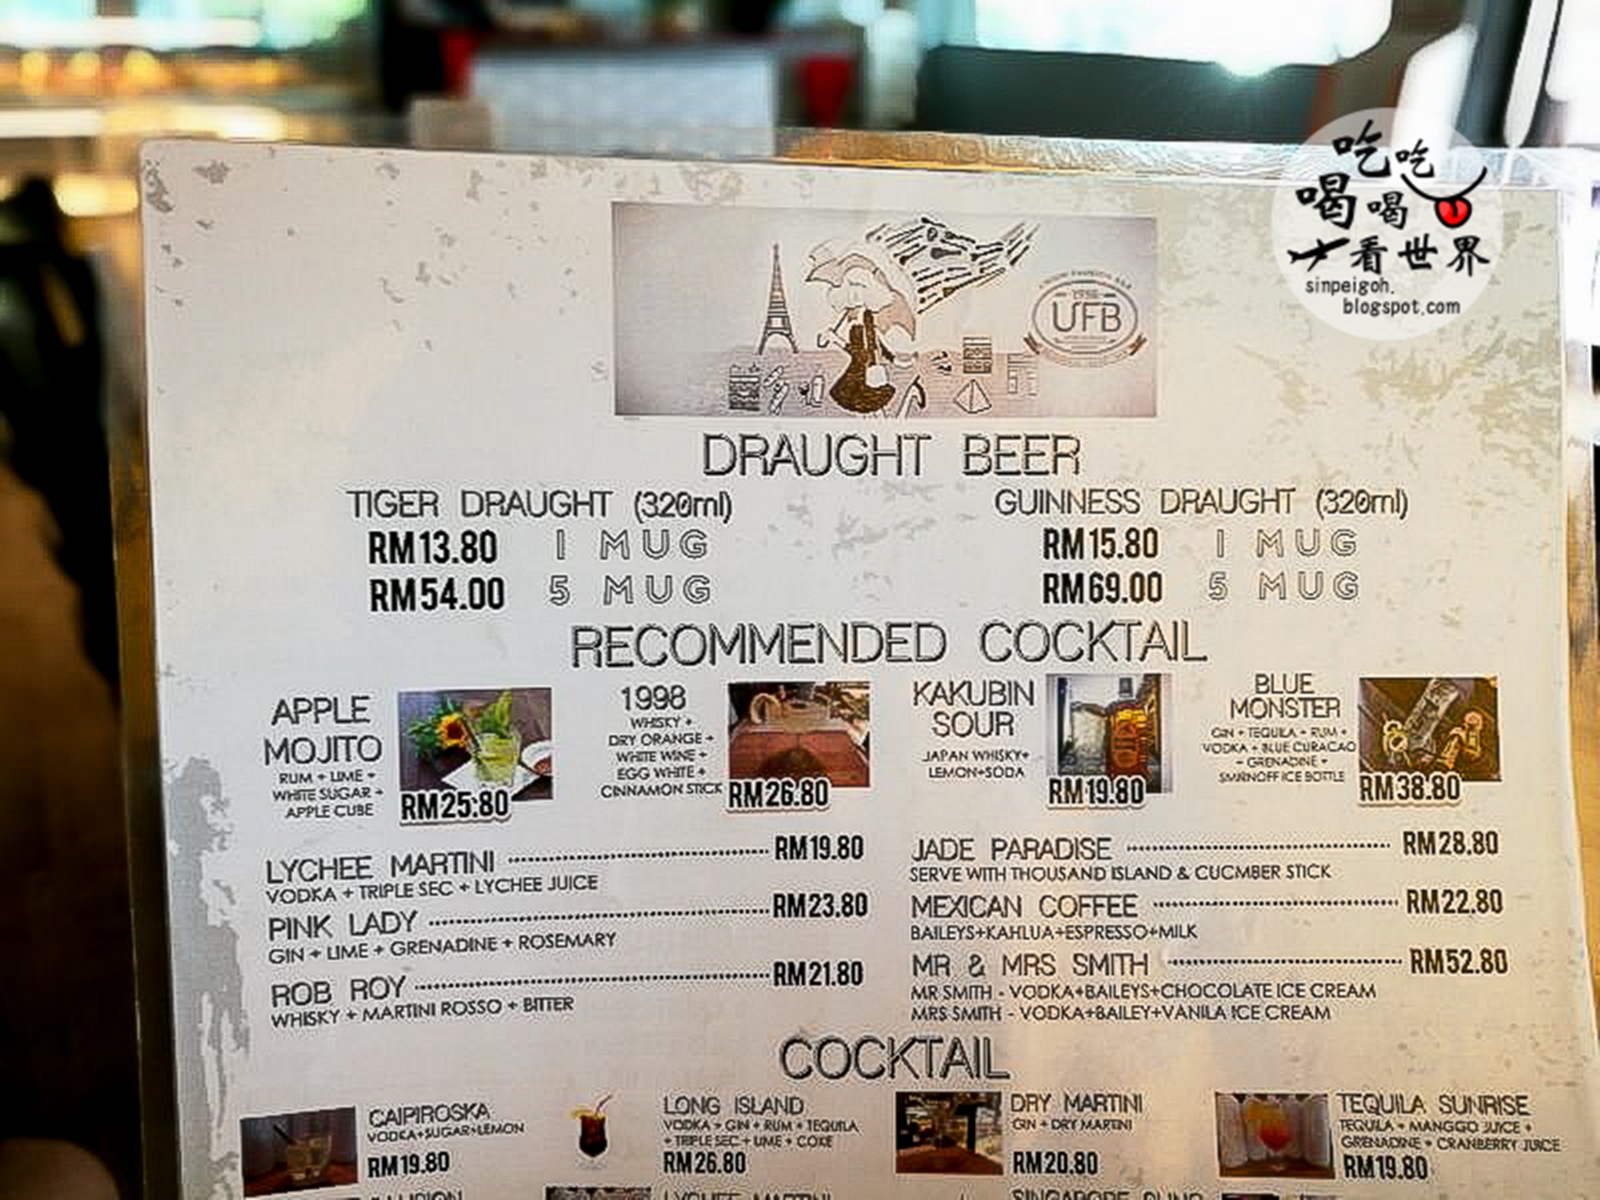 吃吃
喝喝
看世界
sinpeigoh.
blogspot.com
1998
UFB
DRAUGHT BEER
TIGER DRAUGHT (320ml)
RM13.80 1 MUG
RM54.00 5 MUG
GUINNESS DRAUGHT (320ml)
RM15.80 1 MUG
RM69.00 5 MUG
RECOMMENDED COCKTAIL
APPLE
MOJITO
RUM + LIME +
WHITE SUGAR +
APPLE CUBE
RM25.80
1998
WHISKY +
DRY ORANGE +
WHITE WINE +
EGG WHITE +
CINNAMON STICK
RM26.80
KAKUBIN
SOUR
JAPAN WHISKY+
LEMON+SODA
RM19.80
BLUE
MONSTER
GIN + TEQUILA + RUM +
VODKA + BLUE CURACAO
+ GRENADINE +
SMIRNOFF ICE BOTTLE
RM38.80
LYCHEE MARTINI RM19.80
VODKA + TRIPLE SEC + LYCHEE JUICE
PINK LADY RM23.80
GIN + LIME + GRENADINE + ROSEMARY
ROB ROY RM21.80
WHISKY + MARTINI ROSSO + BITTER
JADE PARADISE RM28.80
SERVE WITH THOUSAND ISLAND & CUCMBER STICK
MEXICAN COFFEE RM22.80
BAILEYS+KAHLUA+ESPRESSO+MILK
MR & MRS SMITH RM52.80
MR SMITH - VODKA+BAILEYS+CHOCOLATE ICE CREAM
MRS SMITH - VODKA+BAILEY+VANILA ICE CREAM
COCKTAIL
CAIPIROSKA
VODKA+SUGAR+LEMON
RM19.80
LONG ISLAND
VODKA + GIN + RUM + TEQUILA
+ TRIPLE SEC + LIME + COKE
RM26.80
DRY MARTINI
GIN + DRY MARTINI
RM20.80
TEQUILA SUNRISE
TEQUILA + MANGGO JUICE +
GRENADINE + CRANBERRY JUICE
RM19.80
LYCHEE MARTINI